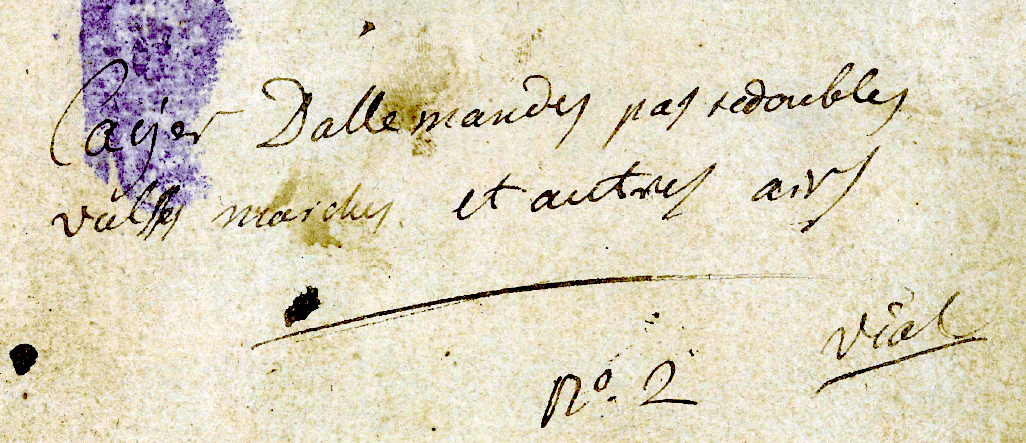 Cayer Dallemandes pas redoubles
valses marches et autres airs
Vial
No. 2